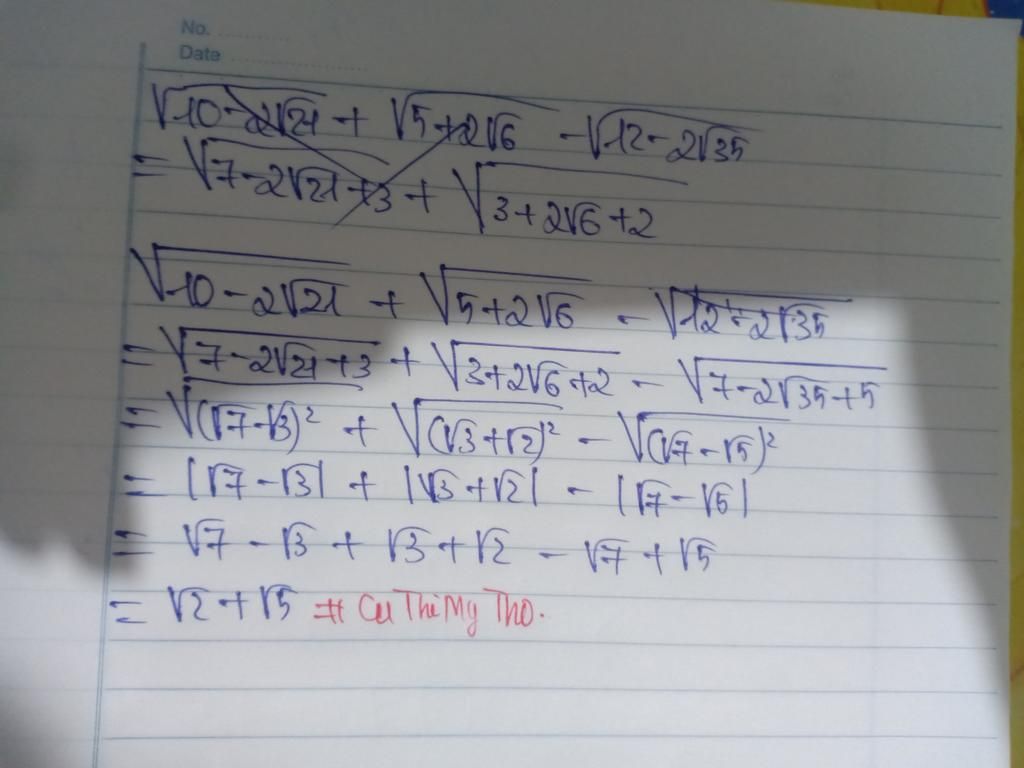 No. ............
Date ........................
√(10 - 2√21) + √(5 + 2√6) - √(12 - 2√35)
= √(7 - 2√21 + 3) + √(3 + 2√6 + 2)
√(10 - 2√21) + √(5 + 2√6) - √(12 - 2√35)
= √(7 - 2√21 + 3) + √(3 + 2√6 + 2) - √(7 - 2√35 + 5)
= √((√7 - √3)²) + √((√3 + √2)²) - √((√7 - √5)²)
= |√7 - √3| + |√3 + √2| - |√7 - √5|
= √7 - √3 + √3 + √2 - √7 + √5
= √2 + √5 # Cu Thi My Tho.